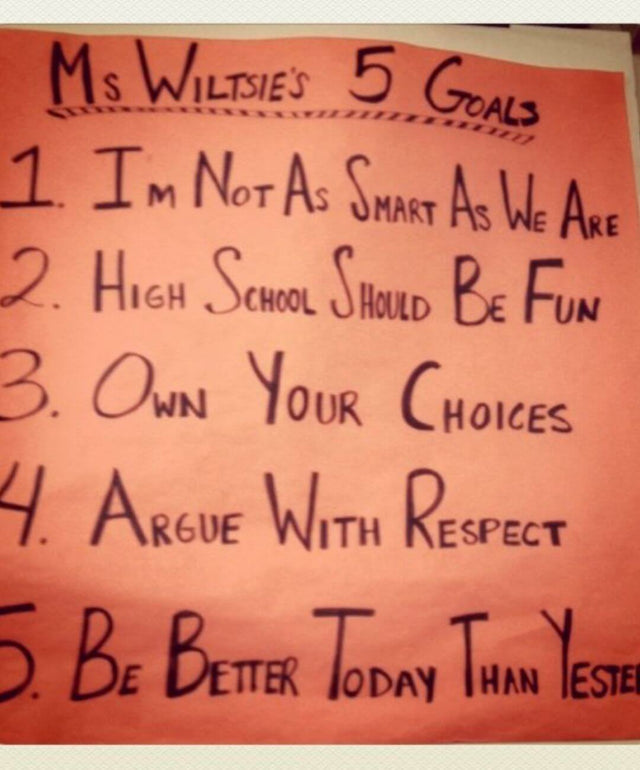 Ms Wiltsie's 5 Goals
1. I'm Not As Smart As We Are
2. High School Should Be Fun
3. Own Your Choices
4. Argue With Respect
5. Be Better Today Than